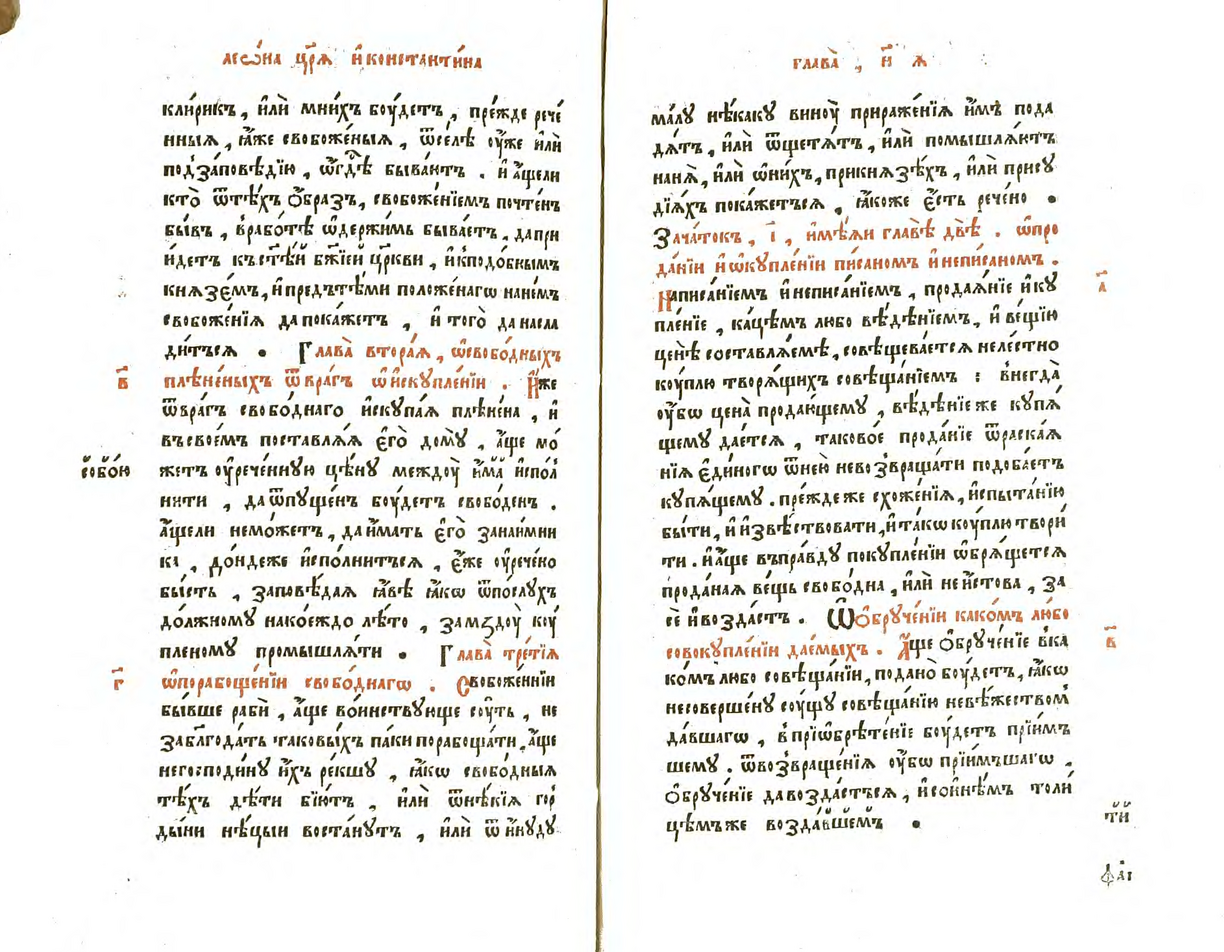 леѡ́на цр҃ѧ и҆ константи́на
кли́рикъ, и҆лѝ мни́хъ боу́детъ, пре́жде рече́
нныѧ, ꙗ҆́же свобоже́ныѧ, ѿсе́лѣ оу҆́же и҆лѝ
под̾за́повѣдїю, ѡ҆гдѣ̀ быва́ютъ. и҆ а҆́щели
кто̀ ѿ тѣ́хъ ѻ҆́бразъ, свобоже́нїемъ почте́нъ
бы́въ, в̾рабо́тѣ ѡ҆держи́мь быва́етъ, да прї
и́детъ къ ст҃ѣ́й бж҃їей цр҃кви, и҆ к̾подо́бнымъ
кнѧзе́мъ, и҆ предъ тѣ́ми положе́нагѡ на не́мъ
свобоже́нїѧ да пока́жетъ, и҆ того̀ да насла
ди́тъсѧ. Глава̀ втора́ѧ, ѡ҆ свобо́дныхъ
в҃
плѣне́ныхъ ѿ вра́гъ ѡ҆ и҆скупле́нїи. И҆́же
ѿ вра́гъ свобо́днаго и҆скупа́ѧ плѣне́на, и҆
въ свое́мъ поставлѧ́ѧ є҆го̀ дому̀, а҆́ще мо́
собо́ю
жетъ оу҆рече́нную цѣ́ну междоу̀ и҆́ма и҆спо́л
нити, да ѿпуще́нъ боу́детъ свобо́денъ.
а҆́щели немо́жетъ, да и҆́мать є҆го̀ за наи́мни
ка, до́ндеже и҆спо́лнитъсѧ, є҆́же оу҆рече́но
бы́сть, заповѣ́даѧ ꙗ҆́вѣ ꙗ҆́кѡ ѿ по́слухъ
до́лжному на кое́ждо лѣ́то, за мздоу̀ коу́
пленому промышлѧ́ти. Глава̀ тре́тїѧ
г҃
ѡ҆ порабоще́нїи свобо́днагѡ. Свобоже́ннїи
бы́вше раби̂, а҆́ще во́инствующе су́ть, не
за бл҃года́ть таковы́хъ па́ки порабоща́ти, а҆́ще
не господи́ну и҆́хъ ре́кшу, ꙗ҆́кѡ свобо́дныѧ
тѣ́хъ дѣ́ти бїю́тъ, и҆лѝ ѿ нѣ́кїѧ гор
ды́ни нѣ́цыи воста́нутъ, и҆лѝ ѿ и҆ну́ду
глава̀, н҃ ѧ
ма́лу нѣ́каку виноу̀ прираже́нїѧ и҆́мъ пода
дѧ́тъ, и҆лѝ ѿщетѧ́тъ, и҆лѝ помышлѧ́ютъ
на нѧ̀, и҆лѝ ѡ҆ ни́хъ, при кнѧзѣ́хъ, и҆лѝ при су
дїѧ́хъ пока́жетъсѧ, ꙗ҆́коже є҆́сть рече́но.
Зача́токъ, і҃, и҆мѣ́ѧи главѣ̀ двѣ̀. ѡ҆ про
да́нїи и҆ ѡ҆ купле́нїи пи́саномъ и҆ непи́саномъ.
а҃
Написа́нїемъ и҆ неписа́нїемъ, продаѧ́нїе и҆ ку
пле́нїе, ка́цѣмъ любо вѣ́дѣнїемъ, и҆ ве́щїю
цѣнѣ̀ составлѧ́емѣ, совѣщева́етсѧ неле́стно
коу́плю творѧ́щихъ совѣща́нїемъ: внегда̀
оу҆́бѡ цена̀ продаю́щему, вѣ́дѣнїе же купѧ́
щему дае́тсѧ, таково́е прода́нїе ѿ раска́ѧ
нїѧ є҆ди́ногѡ ѿ нею̀ невозвраща́ти подоба́етъ
купѧ́щему. пре́жде же схоже́нїѧ, и҆спыта́нїю
бы́ти, и҆ и҆звѣ́ствовати, и҆ та́кѡ коу́плю твори́
ти. и҆ а҆́ще въ пра́вду по купле́нїи ѡ҆брѧ́щетсѧ
про́данаѧ ве́щь свобо́дна, и҆лѝ не и҆́стова, за
сѐ и҆ возда́стъ. Ѡ ѻ҆бруче́нїи како́мъ любо
в҃
совокупле́нїи дае́мыхъ. А҆́ще ѻ҆бруче́нїе в̾ка
ко́мъ любо совѣща́нїи, подано̀ боу́детъ, ꙗ҆́кѡ
несоверше́ну соу́щу совѣща́нїю невѣ́жеством̾
да́вшагѡ, в̾ прїѡбрѣ́тенїе боу́детъ прїи́м
шему. ѿ возвраще́нїѧ оу҆́бѡ прїи́мъшагѡ,
ѻ҆бруче́нїе да возда́стъсѧ, и҆ со и҆нѣ́мъ толи́
ти́
цѣмъже возда́вшемъ.
фа҃і